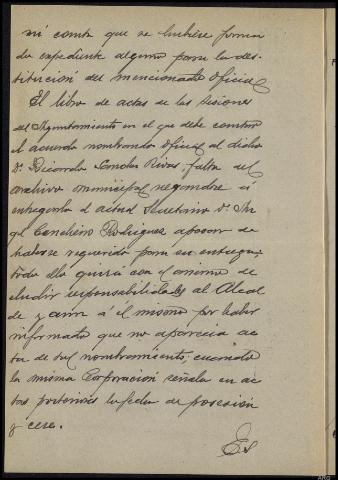 ni consta que se hubiese forma
do expediente alguno para la des-
titución del mencionado Oficial
El libro de actas de las sesiones
del Ayuntamiento en el que debe constar
el acuerdo nombrando Oficial al dicho
Dn. Ricardo Rivas, falta del
archivo municipal negandose á
entregarlo el actual Secretario Dn. An
gel Rodriguez apesar de
haberse requerido para su entrega,
todo ello quizá con el animo de
eludir responsabilidades al Alcal
de y aun á él mismo por haber
informado que no aparecia ac
ta de tal nombramiento, cuando
la misma Corporación señala en ac
tas posteriores la fecha de posesión
y cese.
Es